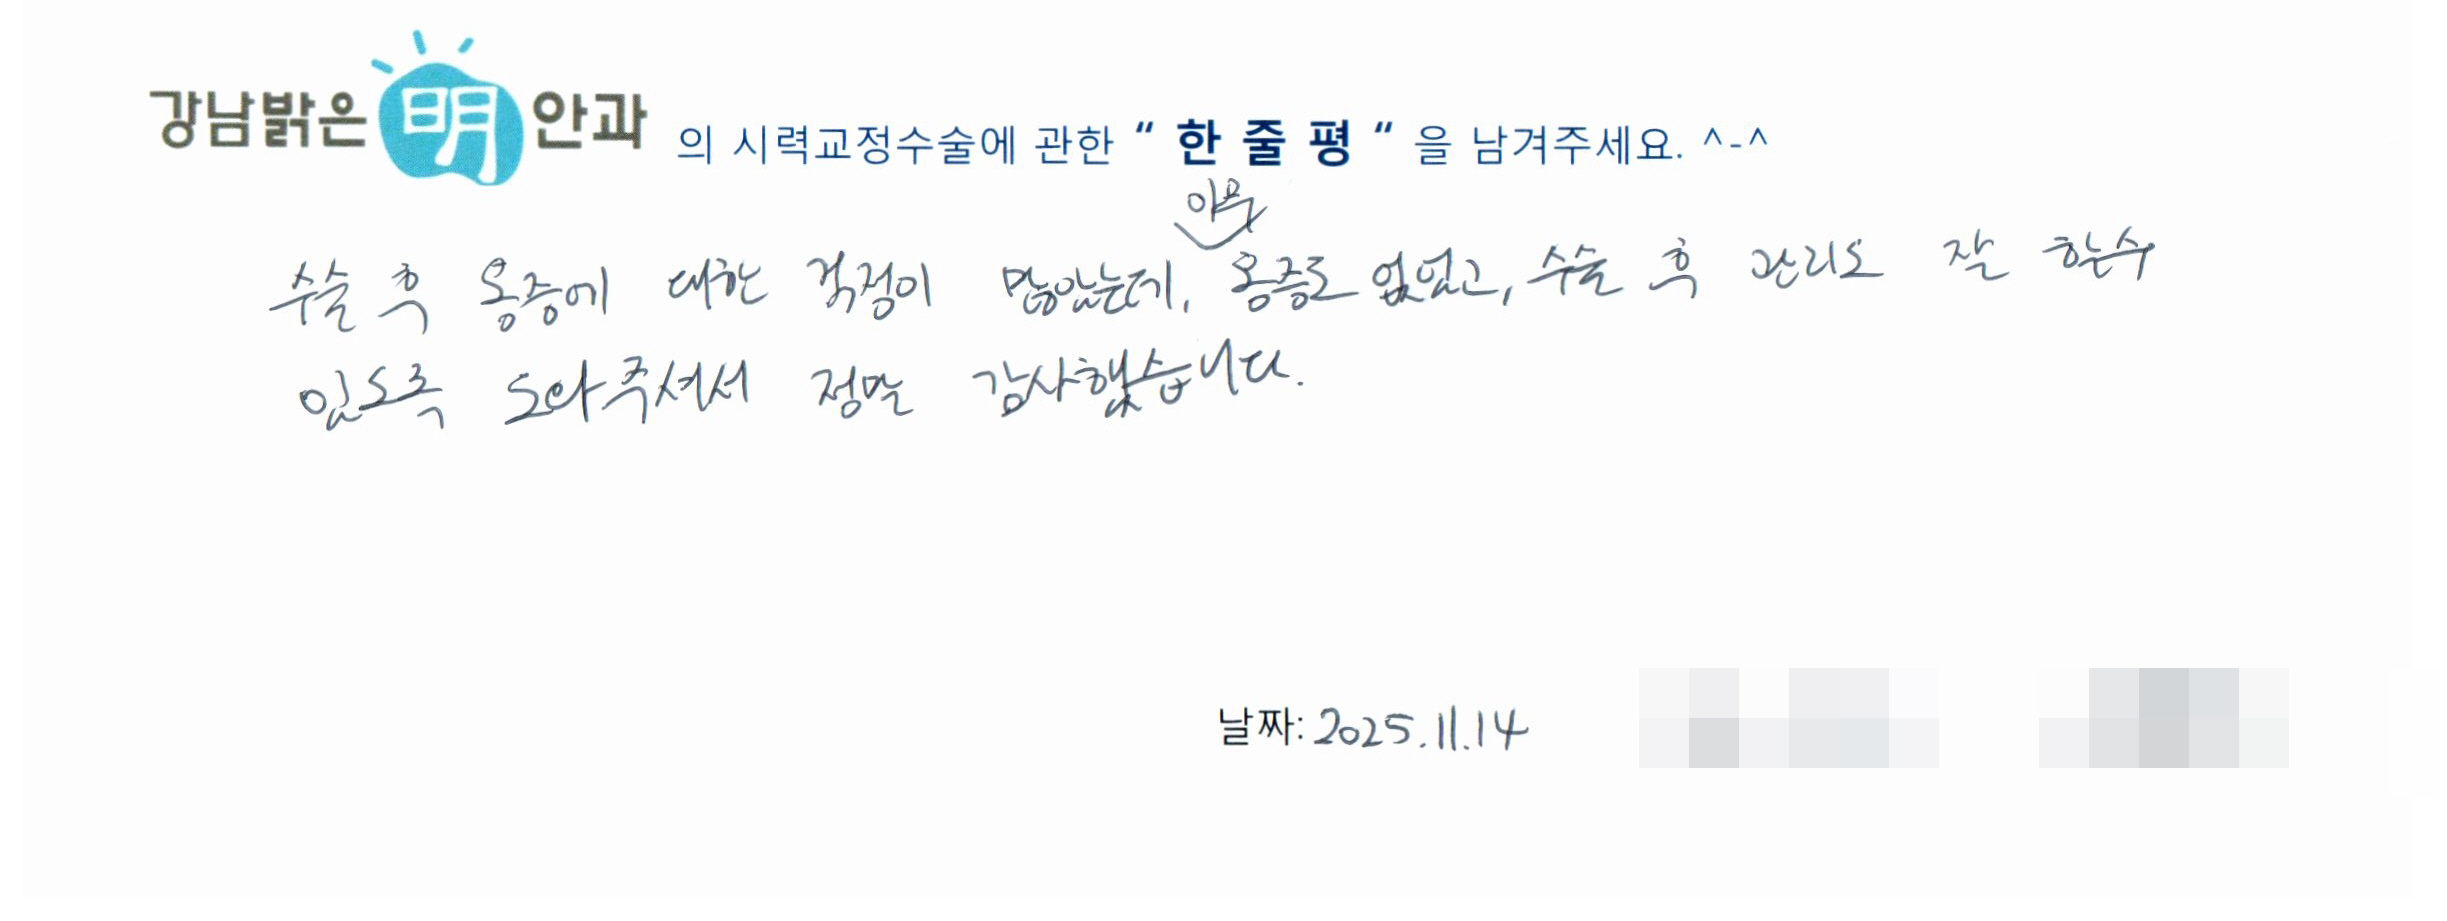 강남밝은明안과 의 시력교정수술에 관한 “ 한 줄 평 “ 을 남겨주세요. ^-^
아무
수술 후 통증에 대한 걱정이 많았는데, 통증도 없었고, 수술 후 관리도 잘 할수
있도록 도와주셔서 정말 감사했습니다.
날짜: 2025.11.14